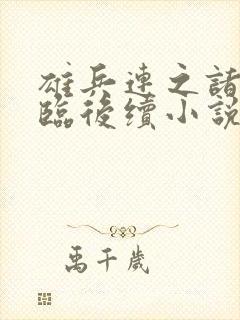 雄兵連之諸
臨後續小説
禹千歲